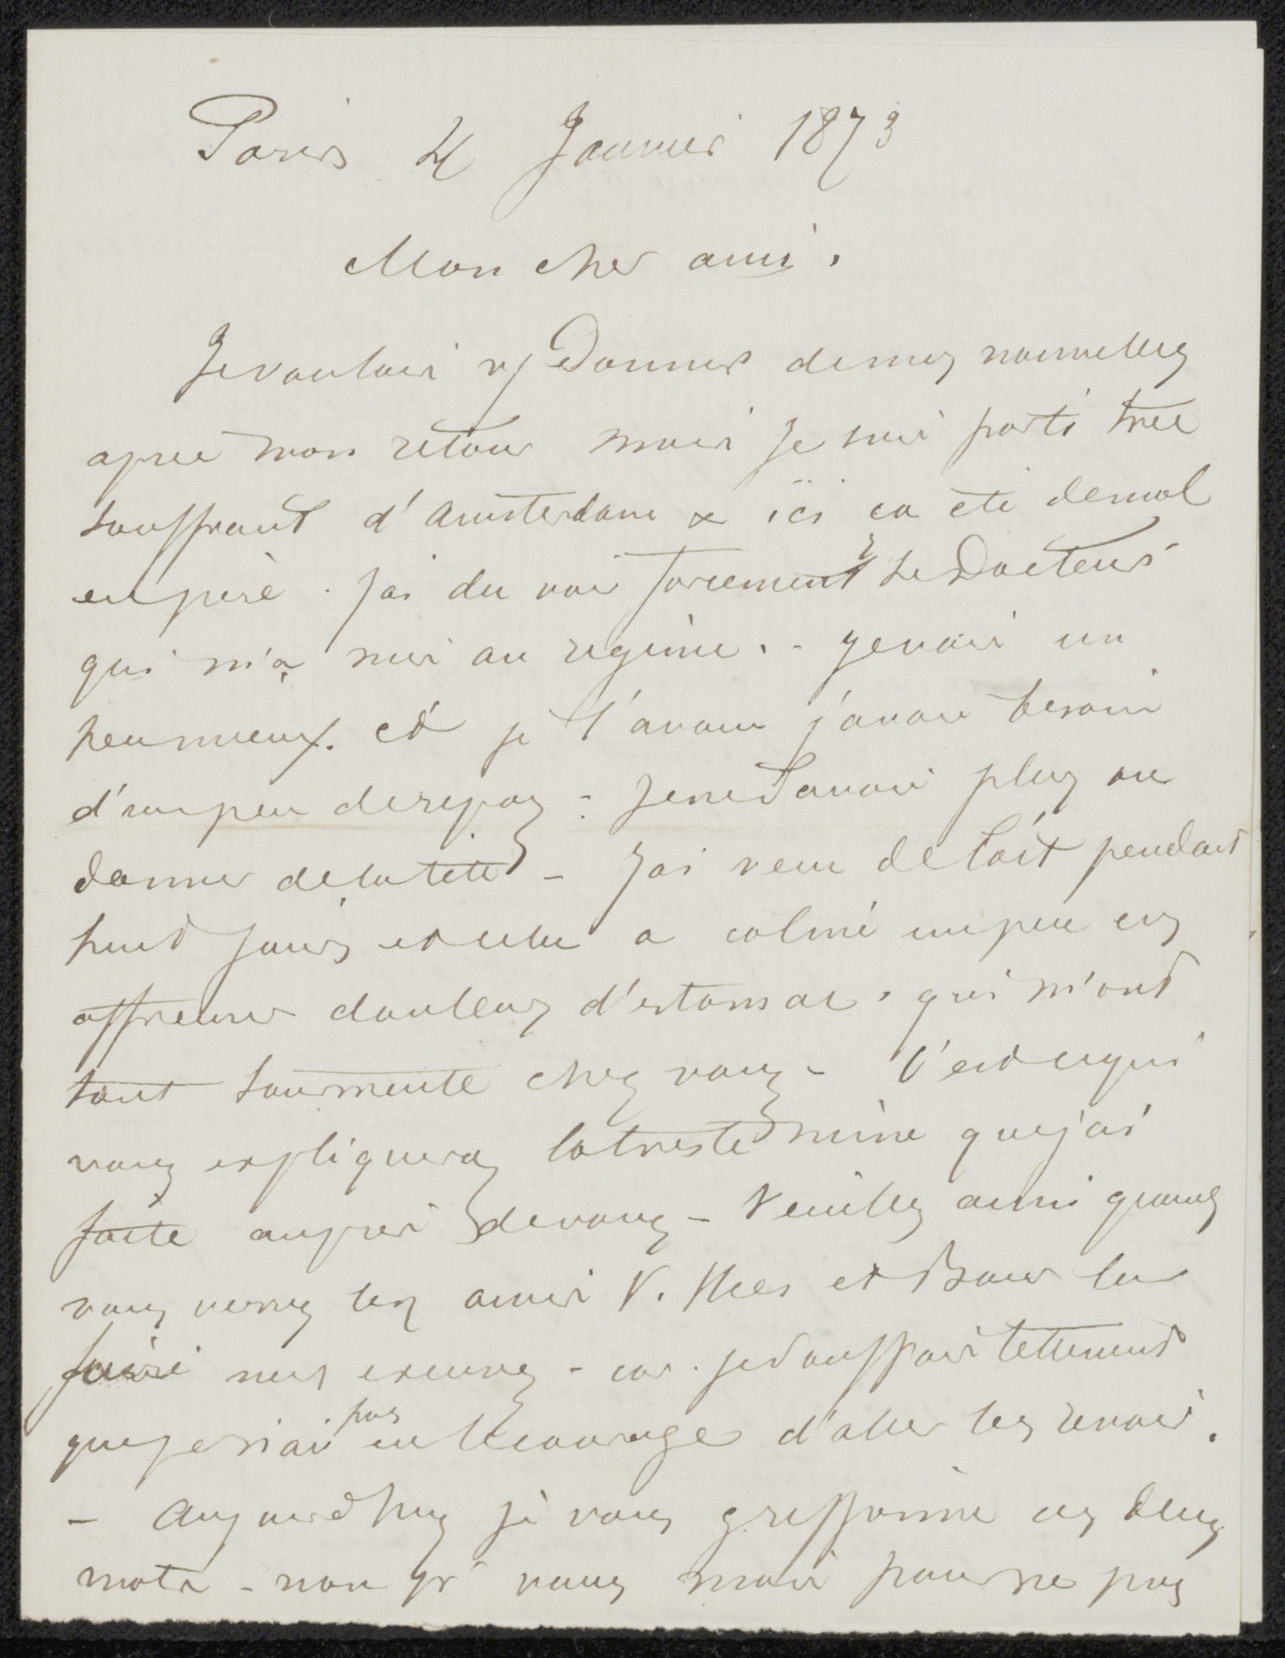 Paris 4 Janvier 1873
Mon cher ami.
Je voulais vs donner de mes nouvelles
apres mon retour mais je suis parti tres
souffrant d'Amsterdam & ici ca été de mal
en pire. J'ai du voir forcement le Docteur
qui m'a mis au regime. - Je vais un
peu mieux. et je l'avoue j'avais besoin
d'un peu de repos - Je ne savais plus ou
donner de la tête - J'ai vecu de lait pendant
huit jours et cela a calmé un peu ces
affreuses douleurs d'estomac, qui m'ont
tant tourmenté chez vous - C'est ce qui
vous expliquera la triste mine que j'ai
faite aupres de vous - Veuillez ami quand
vous verrez les amis V. Hees et Bour leur
faire mes excuses - car je souffrais tellement
que je n'ai pas eu le courage d'aller les revoir.
- Aujourdhuy je vous griffonne ces deux
mots - non pr vous mais pour ne pas